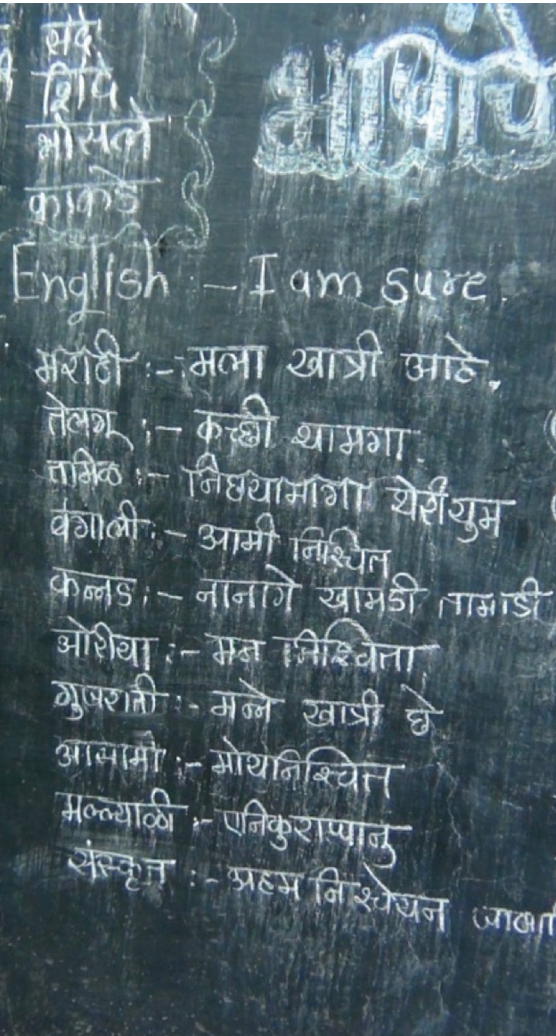 शिंदे
भोसले
काकडे
English :- I am sure.
मराठी :- मला खात्री आहे.
तेलगू :- कच्छी थामगा.
तामिळ :- निछयामागा थेरीयुम
बंगाली :- आमी निश्चित
कन्नड :- नानागे खामडी
ओरीया :- मन निश्चिता
गुजराती :- मन्ने खात्री छे
आसामी :- मोयनिश्चित
मल्ल्याळी :- एनिकुराप्पानु
संस्कृत :- अहम निश्चयेन